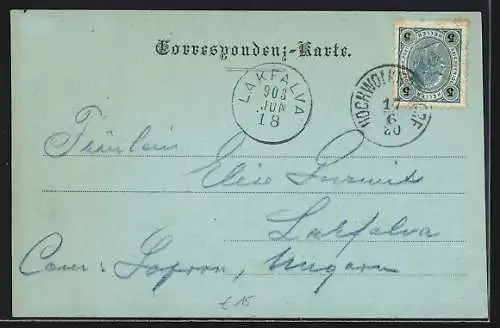 Correspondenz-Karte.
LAKFALVA
903
JUN
18
17
6
5
5
Fräulein
Elise
Lakfalva
Com: Sopron, Ungarn
£ 15